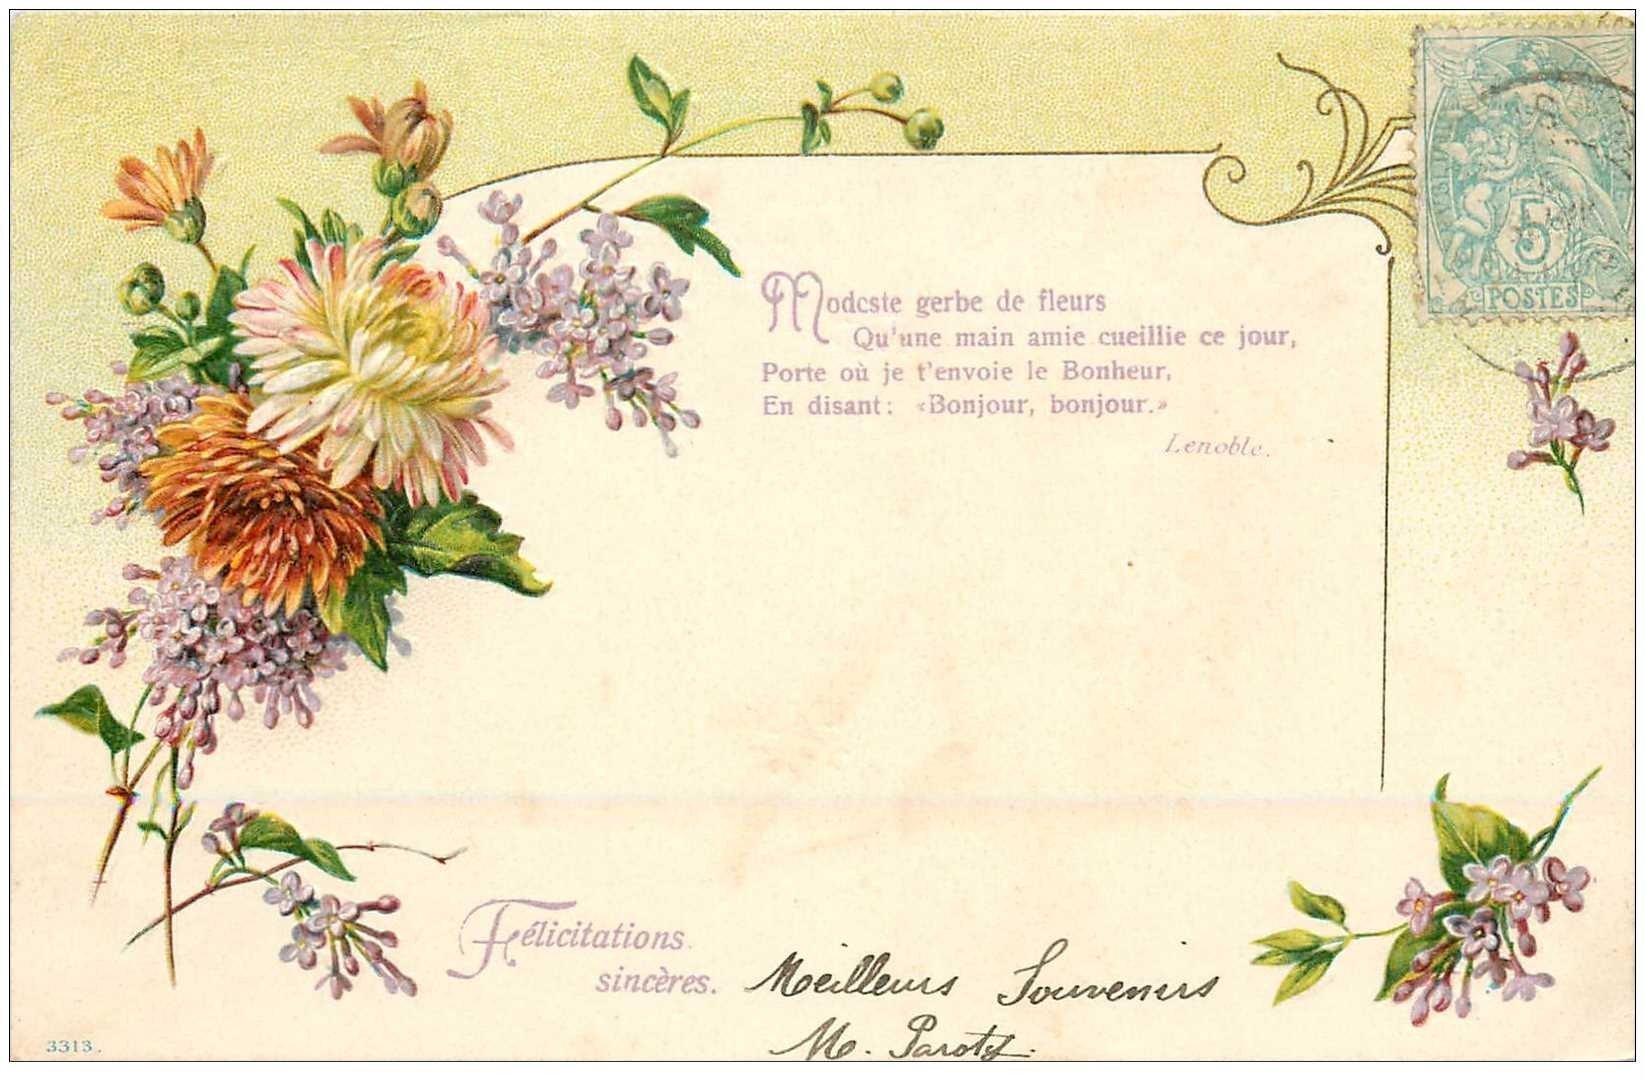 Modeste gerbe de fleurs
Qu'une main amie cueillie ce jour,
Porte où je t'envoie le Bonheur,
En disant: «Bonjour, bonjour.»
Lenoble.
5
POSTES
Félicitations
sincères.
Meilleurs Souvenirs
M.
3313.